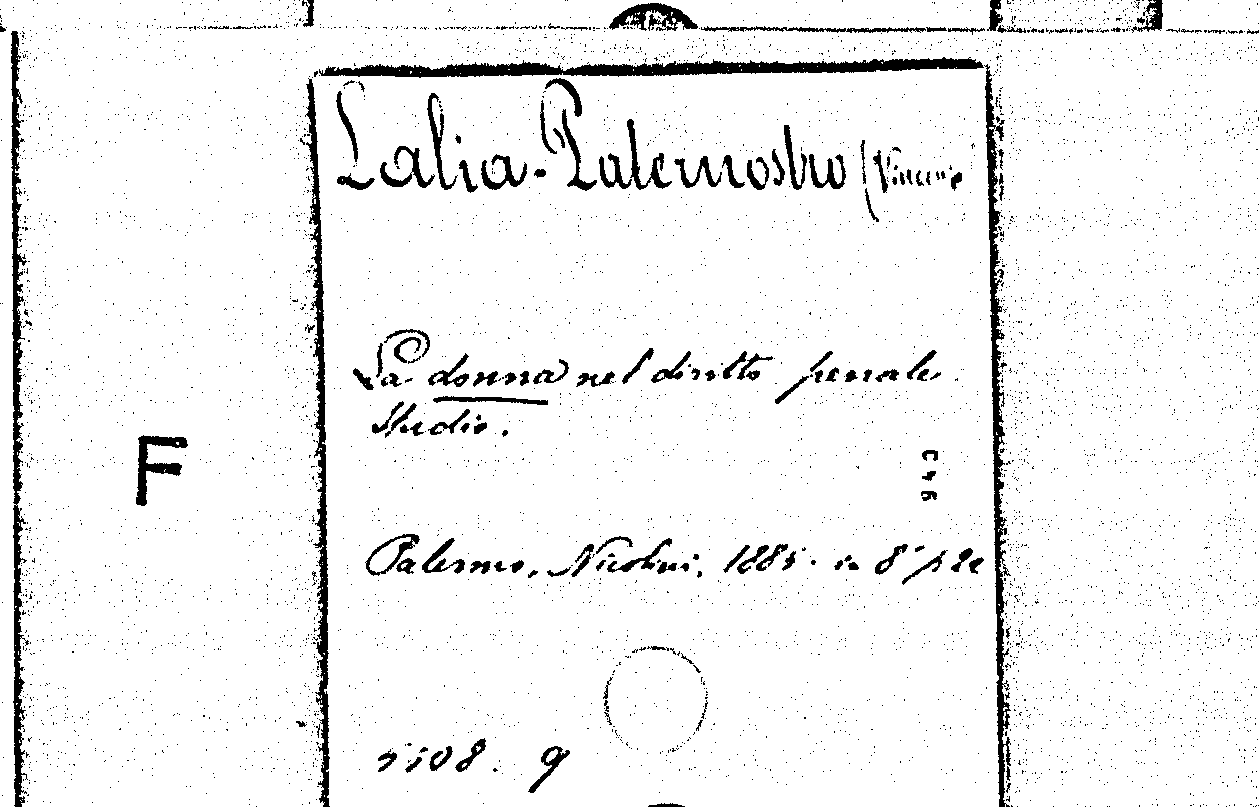 Lalia-Paternostro (Vincenzo
La donna nel diritto penale
Studio.
F
Palermo, Nicolini, 1885. in 8° p